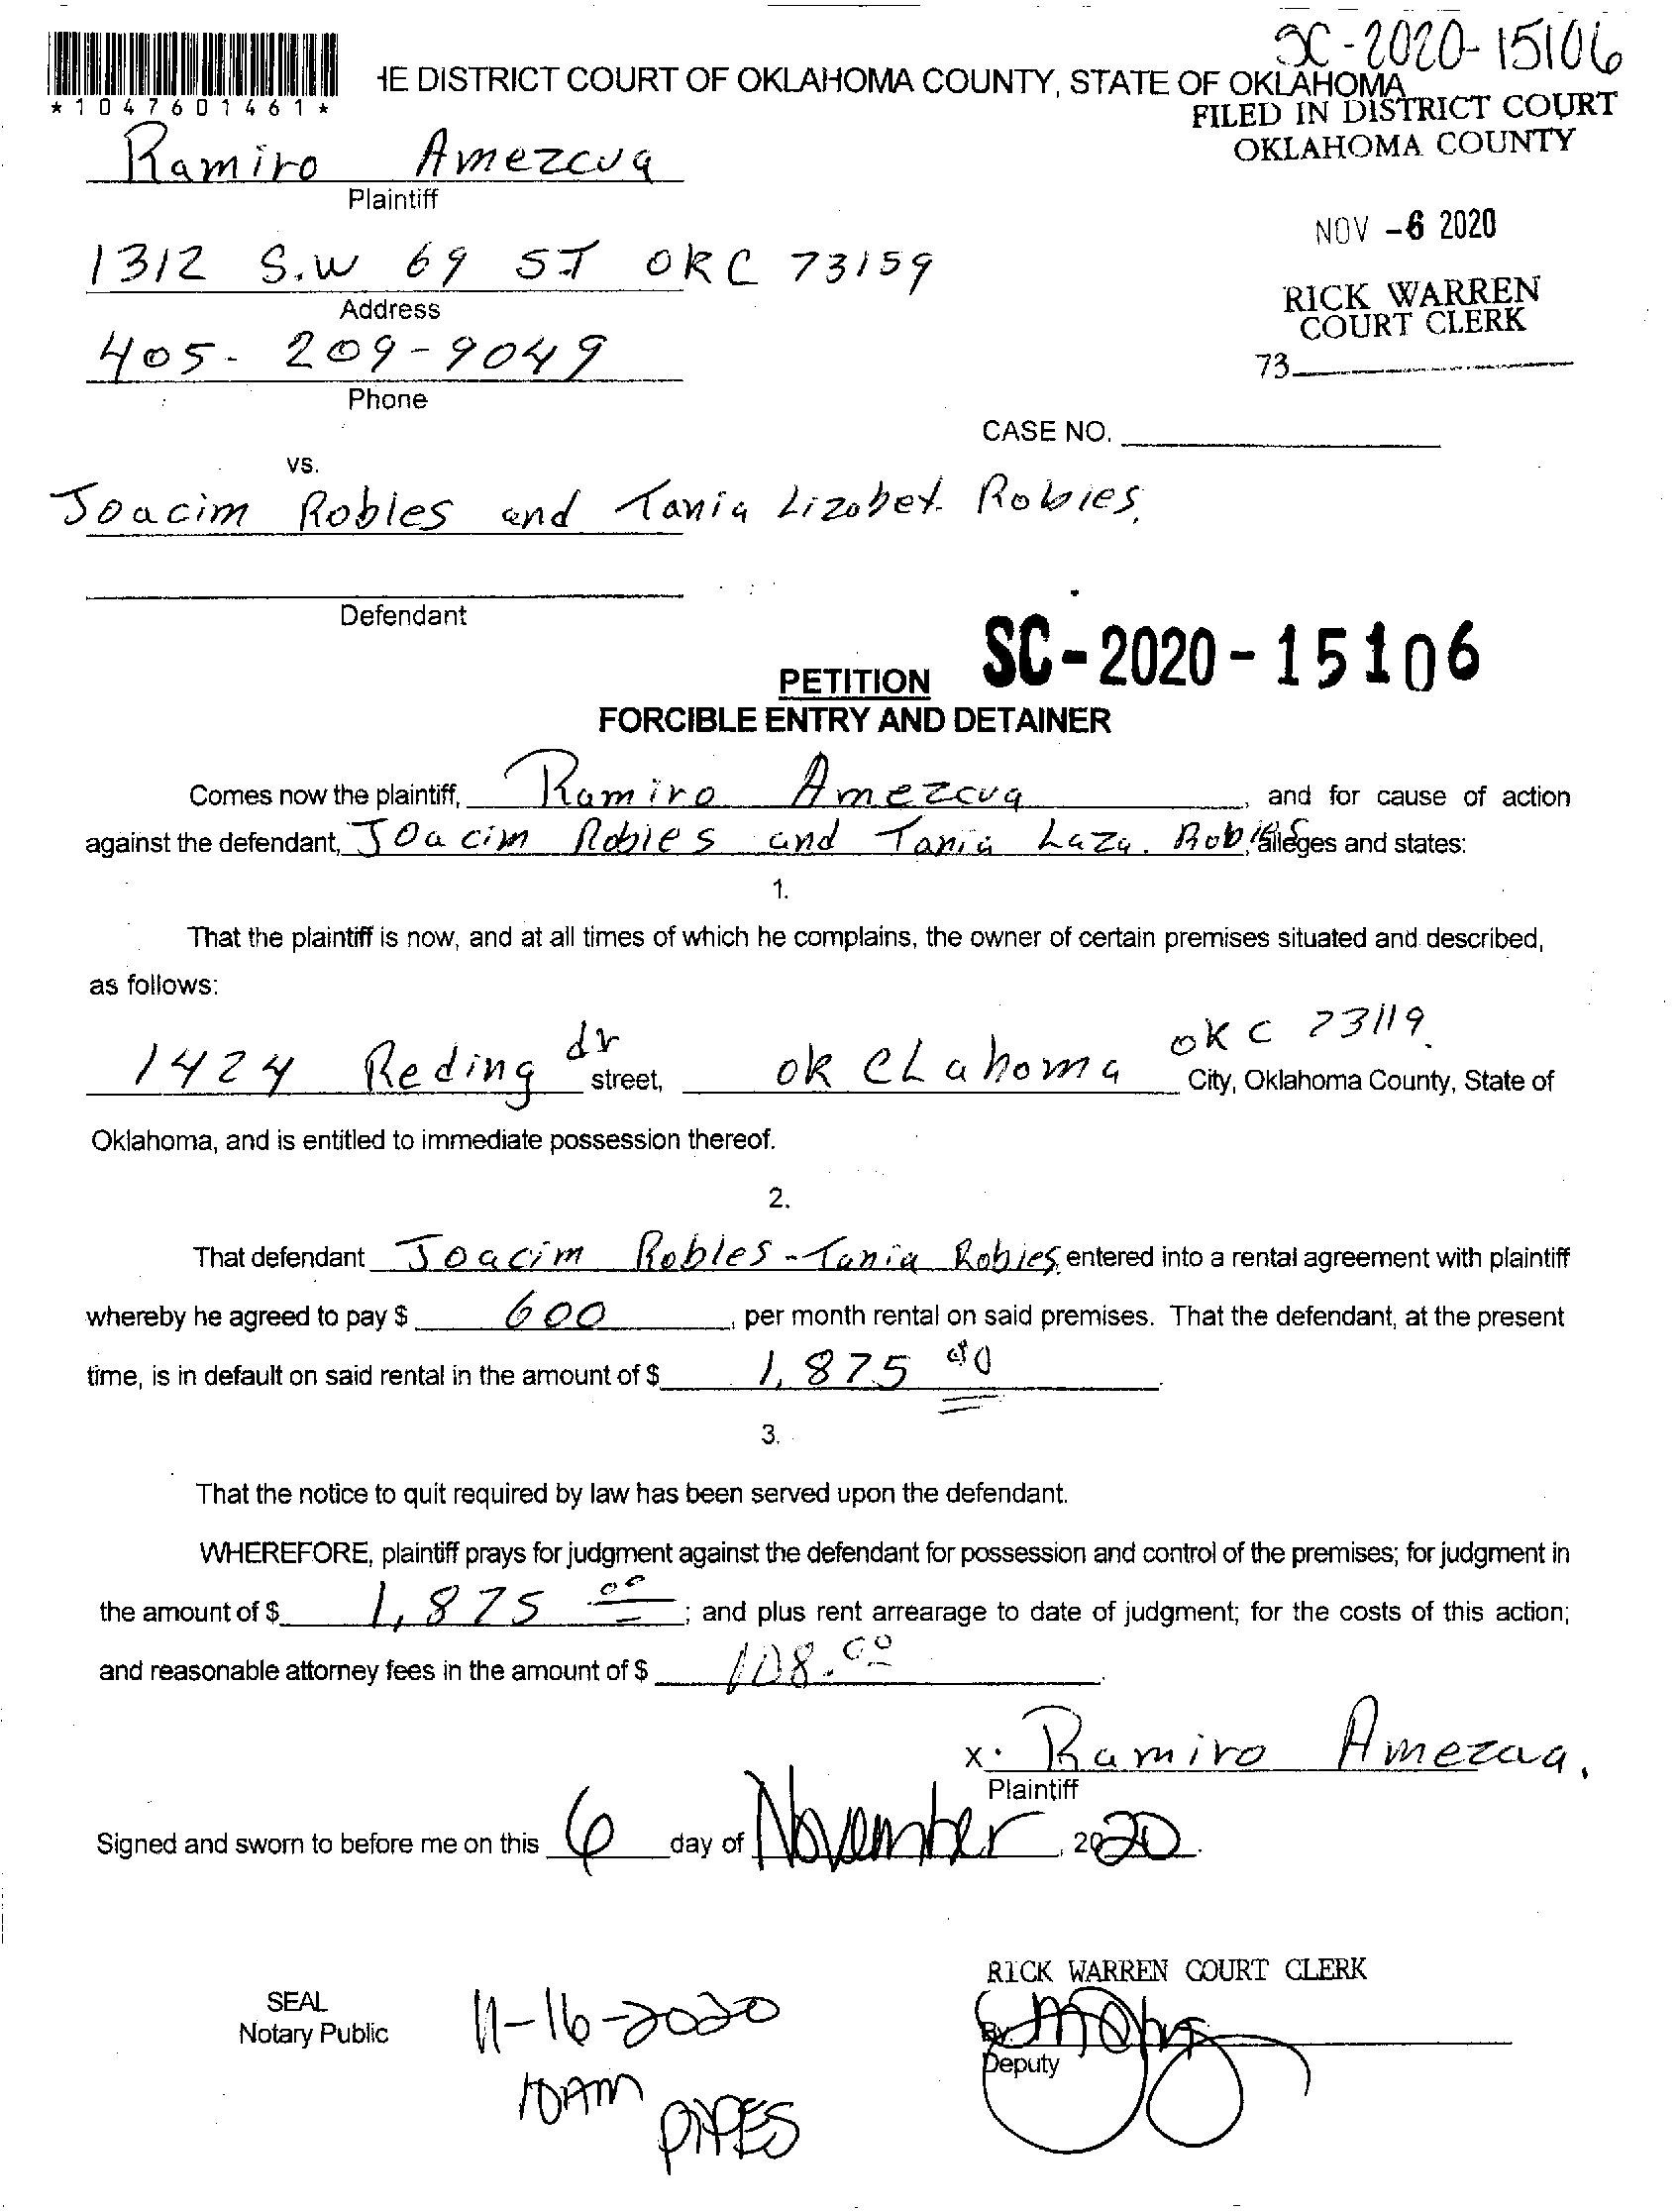 SC-2020-15106
HE DISTRICT COURT OF OKLAHOMA COUNTY, STATE OF OKLAHOMA
*1047601461*
FILED IN DISTRICT COURT
OKLAHOMA COUNTY
Ramiro Amezcua
Plaintiff
NOV -6 2020
1312 S.W 69 ST OKC 73159
Address
RICK WARREN
COURT CLERK
405-209-9049
73
Phone
CASE NO.
vs.
Joacim Robles and Tania Lizobet Robles
Defendant
SC-2020-15106
PETITION
FORCIBLE ENTRY AND DETAINER
Comes now the plaintiff, Ramiro Amezcua, and for cause of action
against the defendant, Joacim Robles and Tania Laza. Robles alleges and states:
1.
That the plaintiff is now, and at all times of which he complains, the owner of certain premises situated and described,
as follows:
1424 Reding dr street, ok cLahoma okc 73119 City, Oklahoma County, State of
Oklahoma, and is entitled to immediate possession thereof.
2.
That defendant Joacim Robles - Tania Robles entered into a rental agreement with plaintiff
whereby he agreed to pay $ 600, per month rental on said premises. That the defendant, at the present
time, is in default on said rental in the amount of $ 1,875 00.
3.
That the notice to quit required by law has been served upon the defendant.
WHEREFORE, plaintiff prays for judgment against the defendant for possession and control of the premises; for judgment in
the amount of $ 1,875 00; and plus rent arrearage to date of judgment; for the costs of this action;
and reasonable attorney fees in the amount of $ 108.00.
x. Ramiro Amezcua.
Plaintiff
Signed and sworn to before me on this 6 day of November, 2020.
RICK WARREN COURT CLERK
SEAL
Notary Public
11-16-2020
By:
Deputy
10AM
PIPES